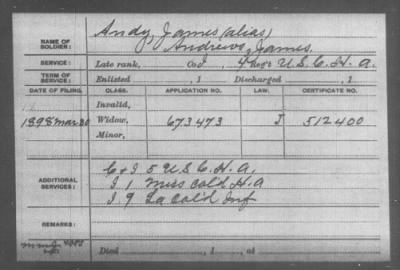 Andy, James (alias)
NAME OF SOLDIER: Andrews, James.
SERVICE: Late rank, Co. , 4 Reg't U.S.C.H.A.
TERM OF SERVICE: Enlisted , 1 Discharged , 1
DATE OF FILING. CLASS. APPLICATION NO. LAW. CERTIFICATE NO.
Invalid,
1898 Mar 30 Widow, 673473 J 512400
Minor,
ADDITIONAL SERVICES:
C & I 5 U.S.C.H.A.
I 1 Miss Col'd H.A
I 9 La Col'd Inf
REMARKS:
Died , 1 , at